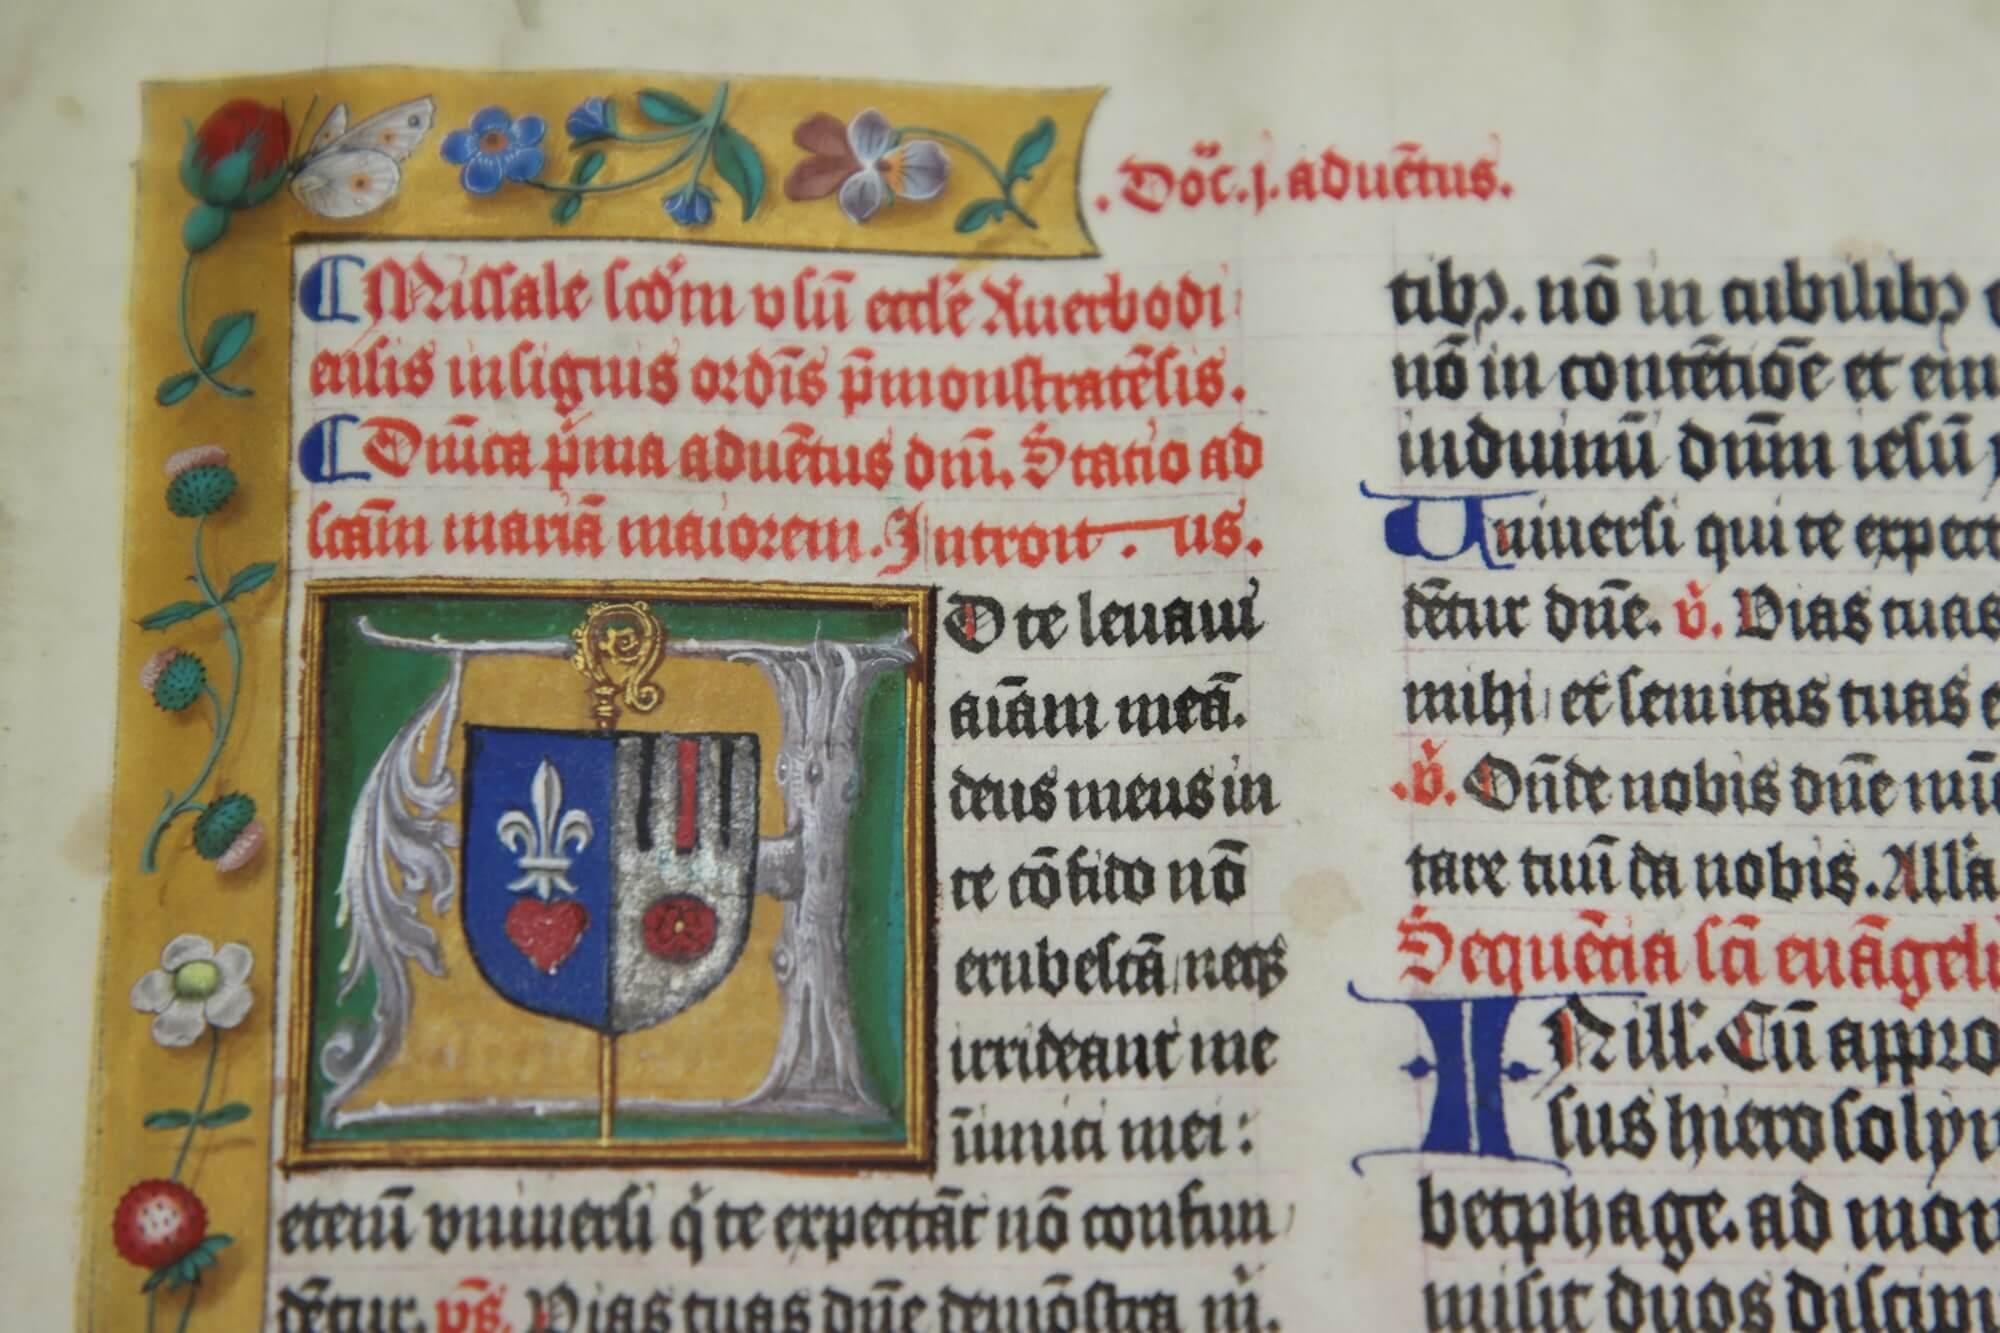 .Doc̃.j.aduẽtus.
Missale scd'm vsũ eccl'e Auerbodi
ensis insignis ordĩs p̃monstratẽsis.
Dñica p'ma aduẽtus dñi. Statio ad
scãm mariã maiorem. Introit . us.
AD te leuaui
aĩam meã.
deus meus in
te cõfido nõ
erubescã, neqꝫ
irrideant me
ĩimici mei:
etenĩ vniuersi q' te expectãt nõ confun
dẽtur. p̃s. Vias tuas dñe demõstra m'.
tibꝰ. nõ in cubilibꝰ
nõ in contẽtiõe et emu
induimĩ dñm iesũ
Uniuersi qui te expect
dẽtur dñe. v̾. Vias tuas
mihi, et semitas tuas e
.v̾. Oñde nobis dñe mĩ
tare tuũ da nobis. All'a
Sequẽtia scĩ euãgeli
IN ill'. Cũ appro
sus hierosolym
betphage. ad mon
misit duos discipu